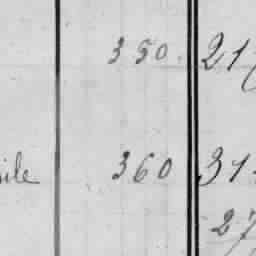 350 21
ile 360 31
27